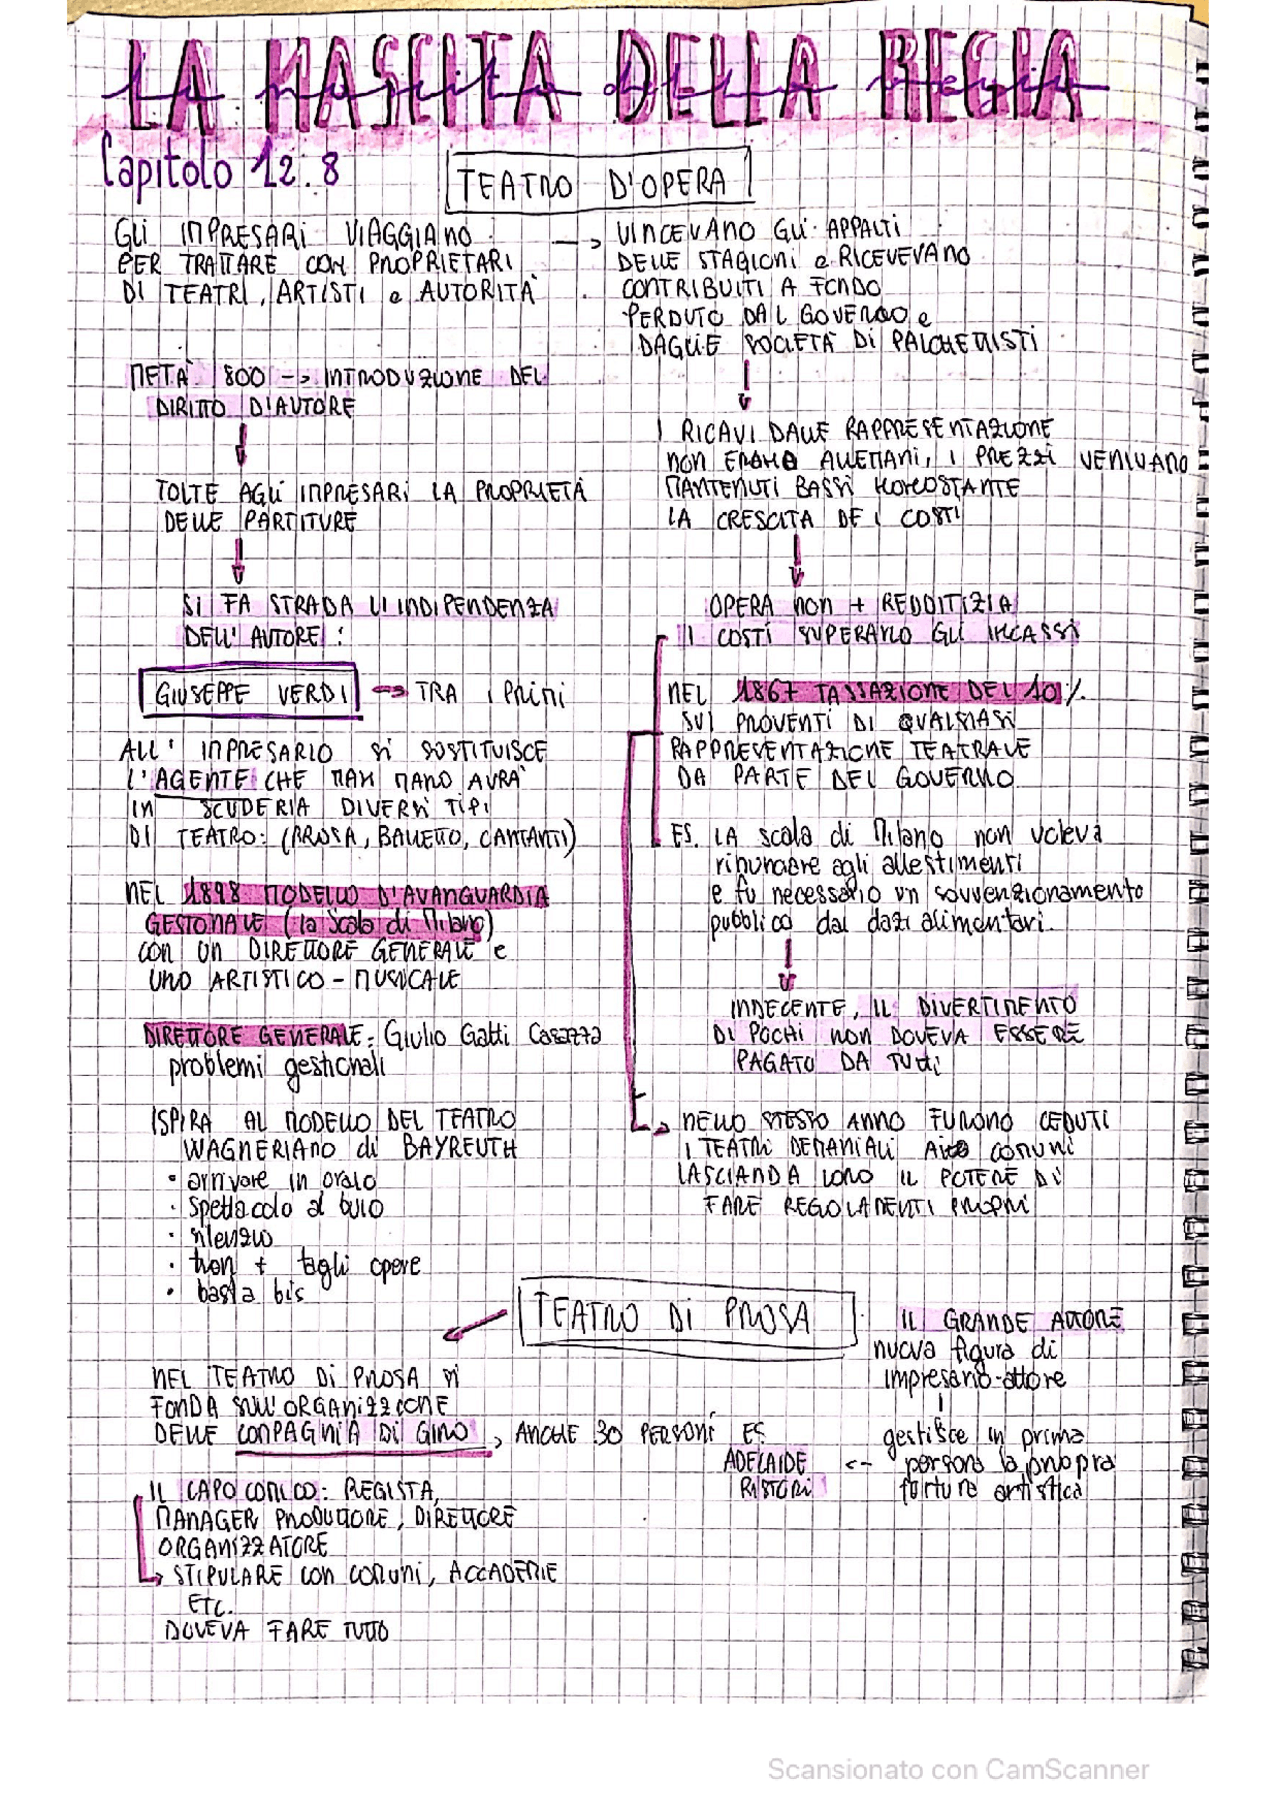 LA NASCITA DELLA REGIA
la nascita della regia
Capitolo 12.8
TEATRO D'OPERA
GLI IMPRESARI VIAGGIANO
PER TRATTARE CON PROPRIETARI
DI TEATRI, ARTISTI e AUTORITÀ
-> VINCEVANO GLI APPALTI
DELLE STAGIONI e RICEVEVANO
CONTRIBUITI A FONDO
PERDUTO DAL GOVERNO e
DAGLIE SOCIETÀ DI PALCHETTISTI
METÀ 800 -> INTRODUZIONE DEL
DIRITTO D'AUTORE
TOLTE AGLI IMPRESARI LA PROPRIETÀ
DELLE PARTITURE
SI FA STRADA LI INDIPENDENZA
DELL' AUTORE:
GIUSEPPE VERDI -> TRA I PRIMI
ALL' IMPRESARIO SI SOSTITUISCE
L'AGENTE CHE MAN MANO AVRÀ
IN SCUDERIA DIVERSI TIPI
DI TEATRO: (PROSA, BALLETTO, CANTANTI)
NEL 1898 MODELLO D'AVANGUARDIA
GESTIONALE (la Scala di Milano)
CON UN DIRETTORE GENERALE e
UNO ARTISTICO - MUSICALE
DIRETTORE GENERALE: Giulio Gatti Casazza
problemi gestionali
ISPIRA AL MODELLO DEL TEATRO
WAGNERIANO di BAYREUTH
• arrivare in orario
• spettacolo al buio
• silenzio
• non + tagli opere
• basta bis
I RICAVI DALLE RAPPRESENTAZIONE
NON ERANO ALLETTANTI, I PREZZI VENIVANO
MANTENUTI BASSI NONOSTANTE
LA CRESCITA DEI COSTI
OPERA NON + REDDITIZIA
I COSTI SUPERANO GLI INCASSI
NEL 1867 TASSAZIONE DEL 10%
SUI PROVENTI DI QUALSIASI
RAPPRESENTAZIONE TEATRALE
DA PARTE DEL GOVERNO
ES. LA scala di Milano non voleva
rinunciare agli allestimenti
e fu necessario un sovvenzionamento
pubblico dai dazi alimentari.
INDECENTE, IL DIVERTIMENTO
DI POCHI NON DOVEVA ESSERE
PAGATO DA TUTTI
-> NELLO STESSO ANNO FURONO CEDUTI
I TEATRI DEMANIALI AI COMUNI
LASCIANDA LORO IL POTERE DI
FARE REGOLAMENTI PROPRI
TEATRO DI PROSA
NEL TEATRO DI PROSA SI
FONDA SULL'ORGANIZZIONE
DELLE COMPAGNIA DI GIRO -> ANCHE 30 PERSONE
IL CAPOCOMICO: REGISTA,
MANAGER PRODUTTORE, DIRETTORE
ORGANIZZATORE
-> STIPULARE con COMUNI, ACCADEMIE
ETC.
DOVEVA FARE TUTTO
IL GRANDE ATTORE
nuova figura di
impresario-attore
gestisce in prima
persona la propria
fortuna artistica
ES.
ADELAIDE <-
RISTORI
Scansionato con CamScanner